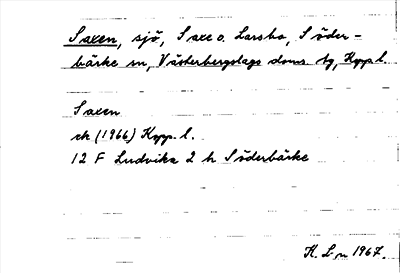 Saxen, sjö, Saxe o. Larsbo, Söder-
bärke sn, Västerbergslags doms. tg, Kopp.l.
Saxen
rk (1966) Kopp. l.
12 F Ludvika 2 h Söderbärke
K. L-m 1967.